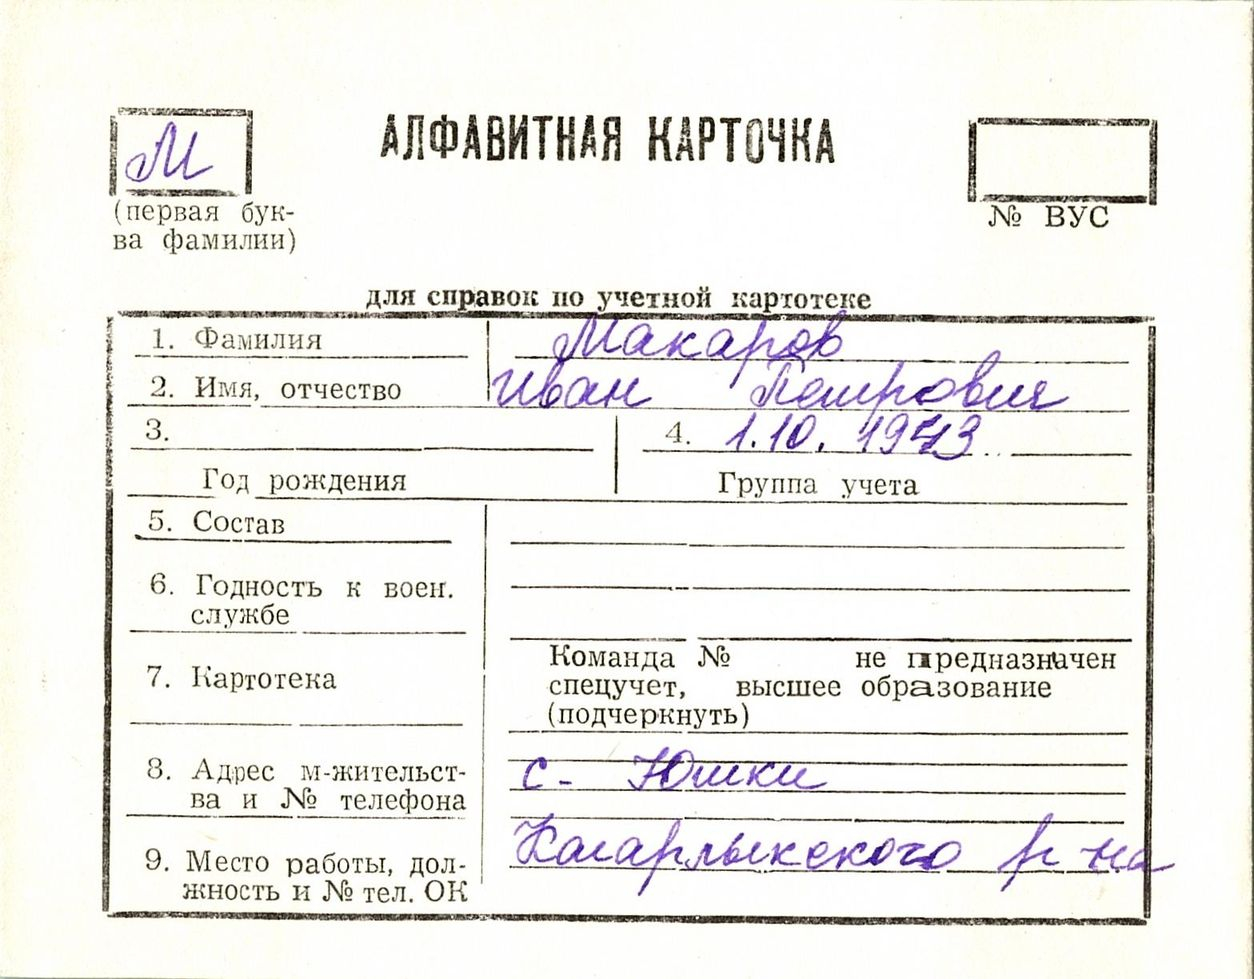 М
АЛФАВИТНАЯ КАРТОЧКА
(первая бук-
ва фамилии)
№ ВУС
для справок по учетной картотеке
1. Фамилия Макаров
2. Имя, отчество Иван Петрович
3. 4. 1.10.1943
Год рождения Группа учета
5. Состав
6. Годность к воен.
службе
7. Картотека
Команда № не предназначен
спецучет, высшее образование
(подчеркнуть)
8. Адрес м-жительст-
ва и № телефона
с- Юшки
9. Место работы, дол-
жность и № тел. ОК
Кагарлыкского р-на